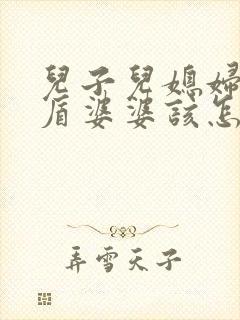 兒子兒媳婦
盾婆婆該怎
弄雪天子